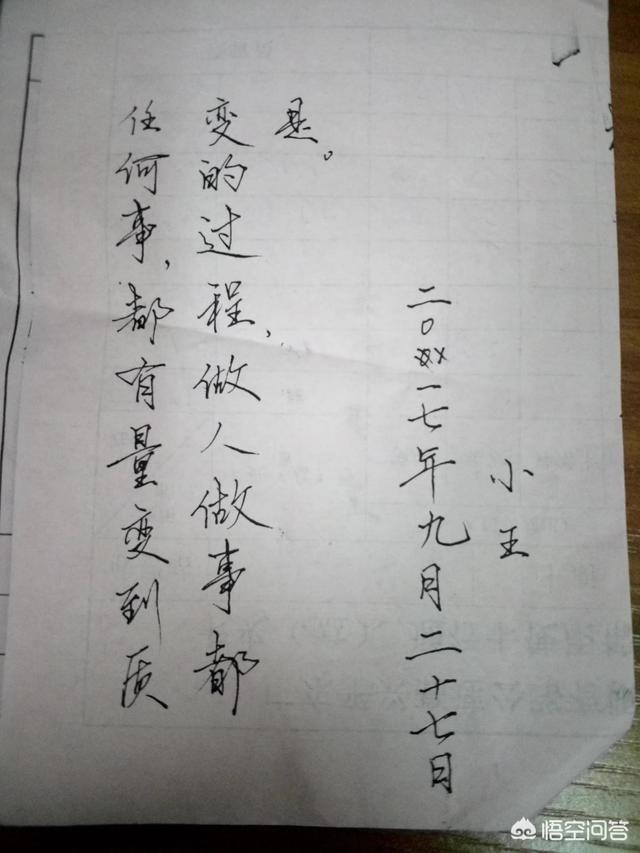 任何事,都有量变到质
变的过程,做人做事都
是。
二〇一七年九月二十七日
小王
悟空问答